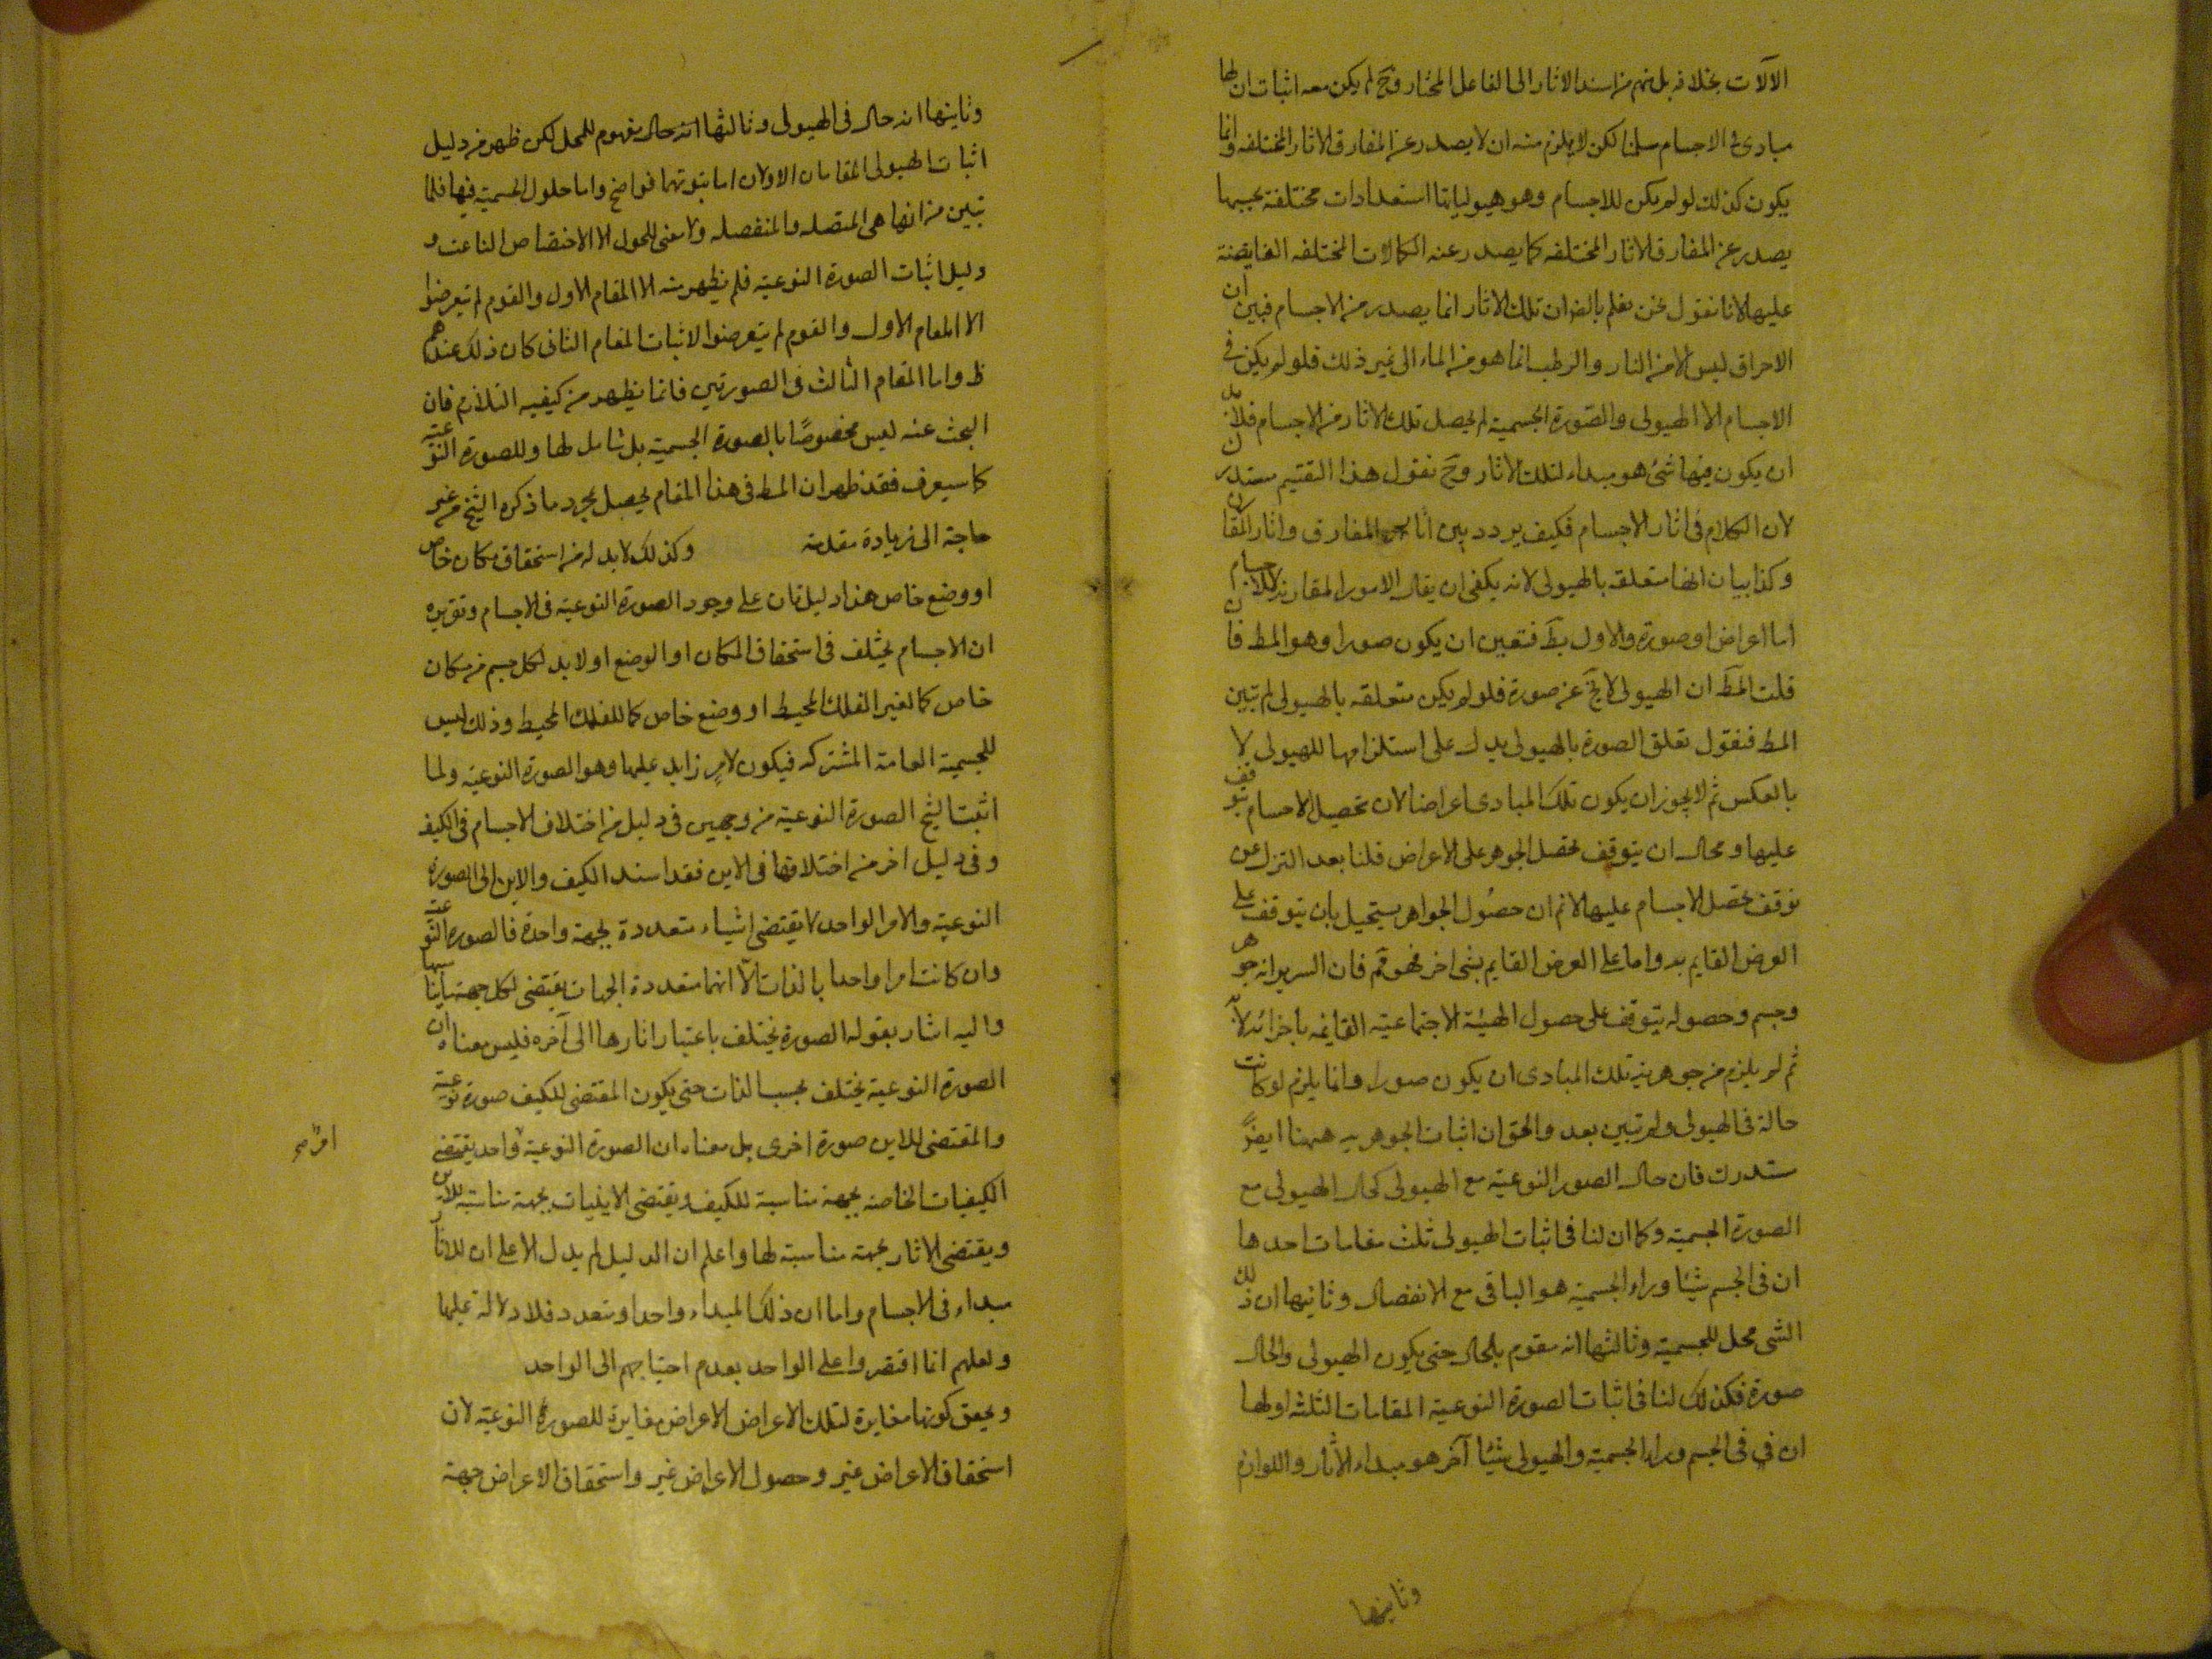 الآلات بخلافه بل منهم من اسند الاثار الى الفاعل المختار وح لم يكن معه اثبات ان لها
مبادى فى الاجسام سلمنا لكن لا يلزم منه ان لا يصدر عن المفارق الاثار المختلفه وانما
يكون كذلك لو لم يكن للاجسام وهو هيولياتها استعدادات مختلفة بحسبها
يصدر عن المفارق الاثار المختلفه كما يصدر عنه الكمالات المختلفه الفايضة
عليها لانا نقول نحن نعلم بالضران تلك الاثار انما يصدر من الاجسام فبين ان
الاحراق ليس الا من النار والرطب انما هو من الماء الى غير ذلك فلو لم يكن فى
الاجسام الا الهيولى والصورة الجسمية لم يحصل تلك الاثار من الاجسام فلابد
ان يكون فيها شئ هو مبداء لتلك الاثار وح نقول هذا التقسيم مستدرك
لان الكلام فى اثار الاجسام فكيف يردد بين اثار المفارق واثار المقارن
وكذا بيان انها متعلقه بالهيولى لانه يكفى ان يقال الامور المقارنة للاجسام
اما اعراض او صورة والاول بط فتعين ان يكون صورا وهو المط فان
قلت المط ان الهيولى لا يخ عن صورة فلو لم يكن متعلقه بالهيولى لم تبين
المط فنقول تعلق الصورة بالهيولى يدل على استلزامها للهيولى لا
بالعكس ثم لا يجوز ان يكون تلك المبادى اعراضا لان تحصيل الاجسام يتوقف
عليها ومحال ان يتوقف تحصل الجوهر على الاعراض قلنا بعد التنزل عن
توقف تحصل الاجسام عليها لانم ان حصُول الجواهر يستحيل بان يتوقف على
العرض القايم به واما على العرض القايم بشى اخر فهو مم فان السرير انه جوهر
وجسم وحصوله يتوقف على حصول الهيئة الاجتماعية القائمه باجزائه لابه
ثم لم يلزم من جوهرية تلك المبادى ان يكون صورا وانما يلزم لو كانت
حالة فى الهيولى ولم تبين بعد والحق ان اثبات الجوهريه ههنا ايضً
مستدرك فان حال الصور النوعية مع الهيولى كحال الهيولى مع
الصورة الجسمية وكما ان لنا فى اثبات الهيولى ثلث مقامات احدها
ان فى الجسم شيئا وراء الجسمية هو الباقى مع الانفصال وثانيها ان ذلك
الشى محل للجسمية وثالثها انه مقوم بالحال حتى يكون الهيولى والحال
صورة فكذلك لنا فى اثبات الصورة النوعية المقامات الثلثه اولها
ان فى فى الجسم وراء الجسمية والهيولى شيئا آخر هو مبداء الاثار واللوازم
وثانيها
وثانيها انه حال فى الهيولى وثالثها انه حال مقوم للمحل لكن ظهر من دليل
اثبات الهيولى المقامان الاولان اما ثبوتها فواضح واما حلول الجسمية فيها فلما
تبين من انها هى المتصله والمنفصله ولا معنى للحول الا الاختصاص الناعت و
دليل اثبات الصورة النوعية فلم يظهر منه الا المقام الاول والقوم لم يتعرضوا
الا المقام الاول والقوم لم يتعرضوا لاثبات المقام الثانى كان ذلك عندهم
ظ واما المقام الثالث فى الصورتين فانما يظهر من كيفيه التلازم فان
البحث عنه ليس مخصوصًا بالصورة الجسمية بل شامل لها وللصورة النوعية
كما سيعرف فقد ظهر ان المط فى هذا المقام يحصل بمجرد ما ذكره الشيخ من غير
حاجة الى زيادة مقدمة وكذلك لابد له من استحقاق مكان خاص
او وضع خاص هذا دليل ثان على وجود الصورة النوعية فى الاجسام وتقريره
ان الاجسام يختلف فى استحقاق المكان او الوضع اولابد لكل جسم من مكان
خاص كما لغير الفلك المحيط او وضع خاص كما للفلك المحيط وذلك ليس
للجسمية العامة المشتركه فيكون لامر زايد عليها وهو الصورة النوعية ولما
اثبت الشيخ الصورة النوعية من وجهين فى دليل من اختلاف الاجسام فى الكيف
وفى دليل اخر من اختلافها فى الاين فقد اسند الكيف والاين الى الصورة
النوعية والامر الواحد لا يقتضى اشياء متعددة بجهة واحدة فالصورة النوعية
وان كانت امرا واحدا بالذات الّا انها متعددة الجهات يقتضى لكل جهة يناسبها
واليه اشار بقوله الصورة يختلف باعتبار اثارها الى آخره فليس معناه ان
الصورة النوعية يختلف بحسب الذات حتى يكون المقتضى للكيف صورة نوعية
والمقتضى للاين صورة اخرى بل معناه ان الصورة النوعية واحد يقتضى
امر صح
الكيفيات الخاصة بجهة مناسبة للكيف ويقتضى الاينيات بجهة مناسبة للاين
ويقتضى الاثار بجهة مناسبة لها واعلم ان الدليل لم يدل الا على ان للاثار
مبداء فى الاجسام واما ان ذلك المبداء واحدا ومتعدد فلا دلالة عليها
ولعلهم انما اقتصروا على الواحد بعدم احتياجهم الى الواحد
ويحقق كونها مغايرة لتلك الاعراض الاعراض مغايرة للصورة النوعية لان
استحقاق الاعراض غير وحصول الاعراض غير واستحقاق الاعراض جهة